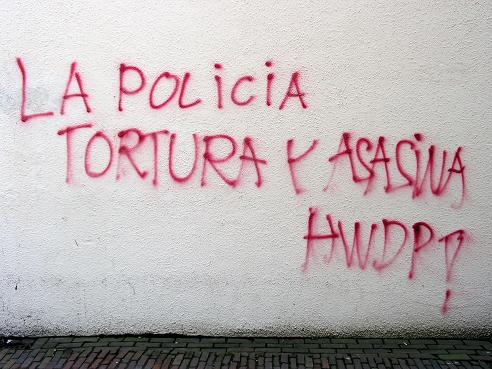 LA POLiCiA
TORTURA Y ASASiNA
HWDP!